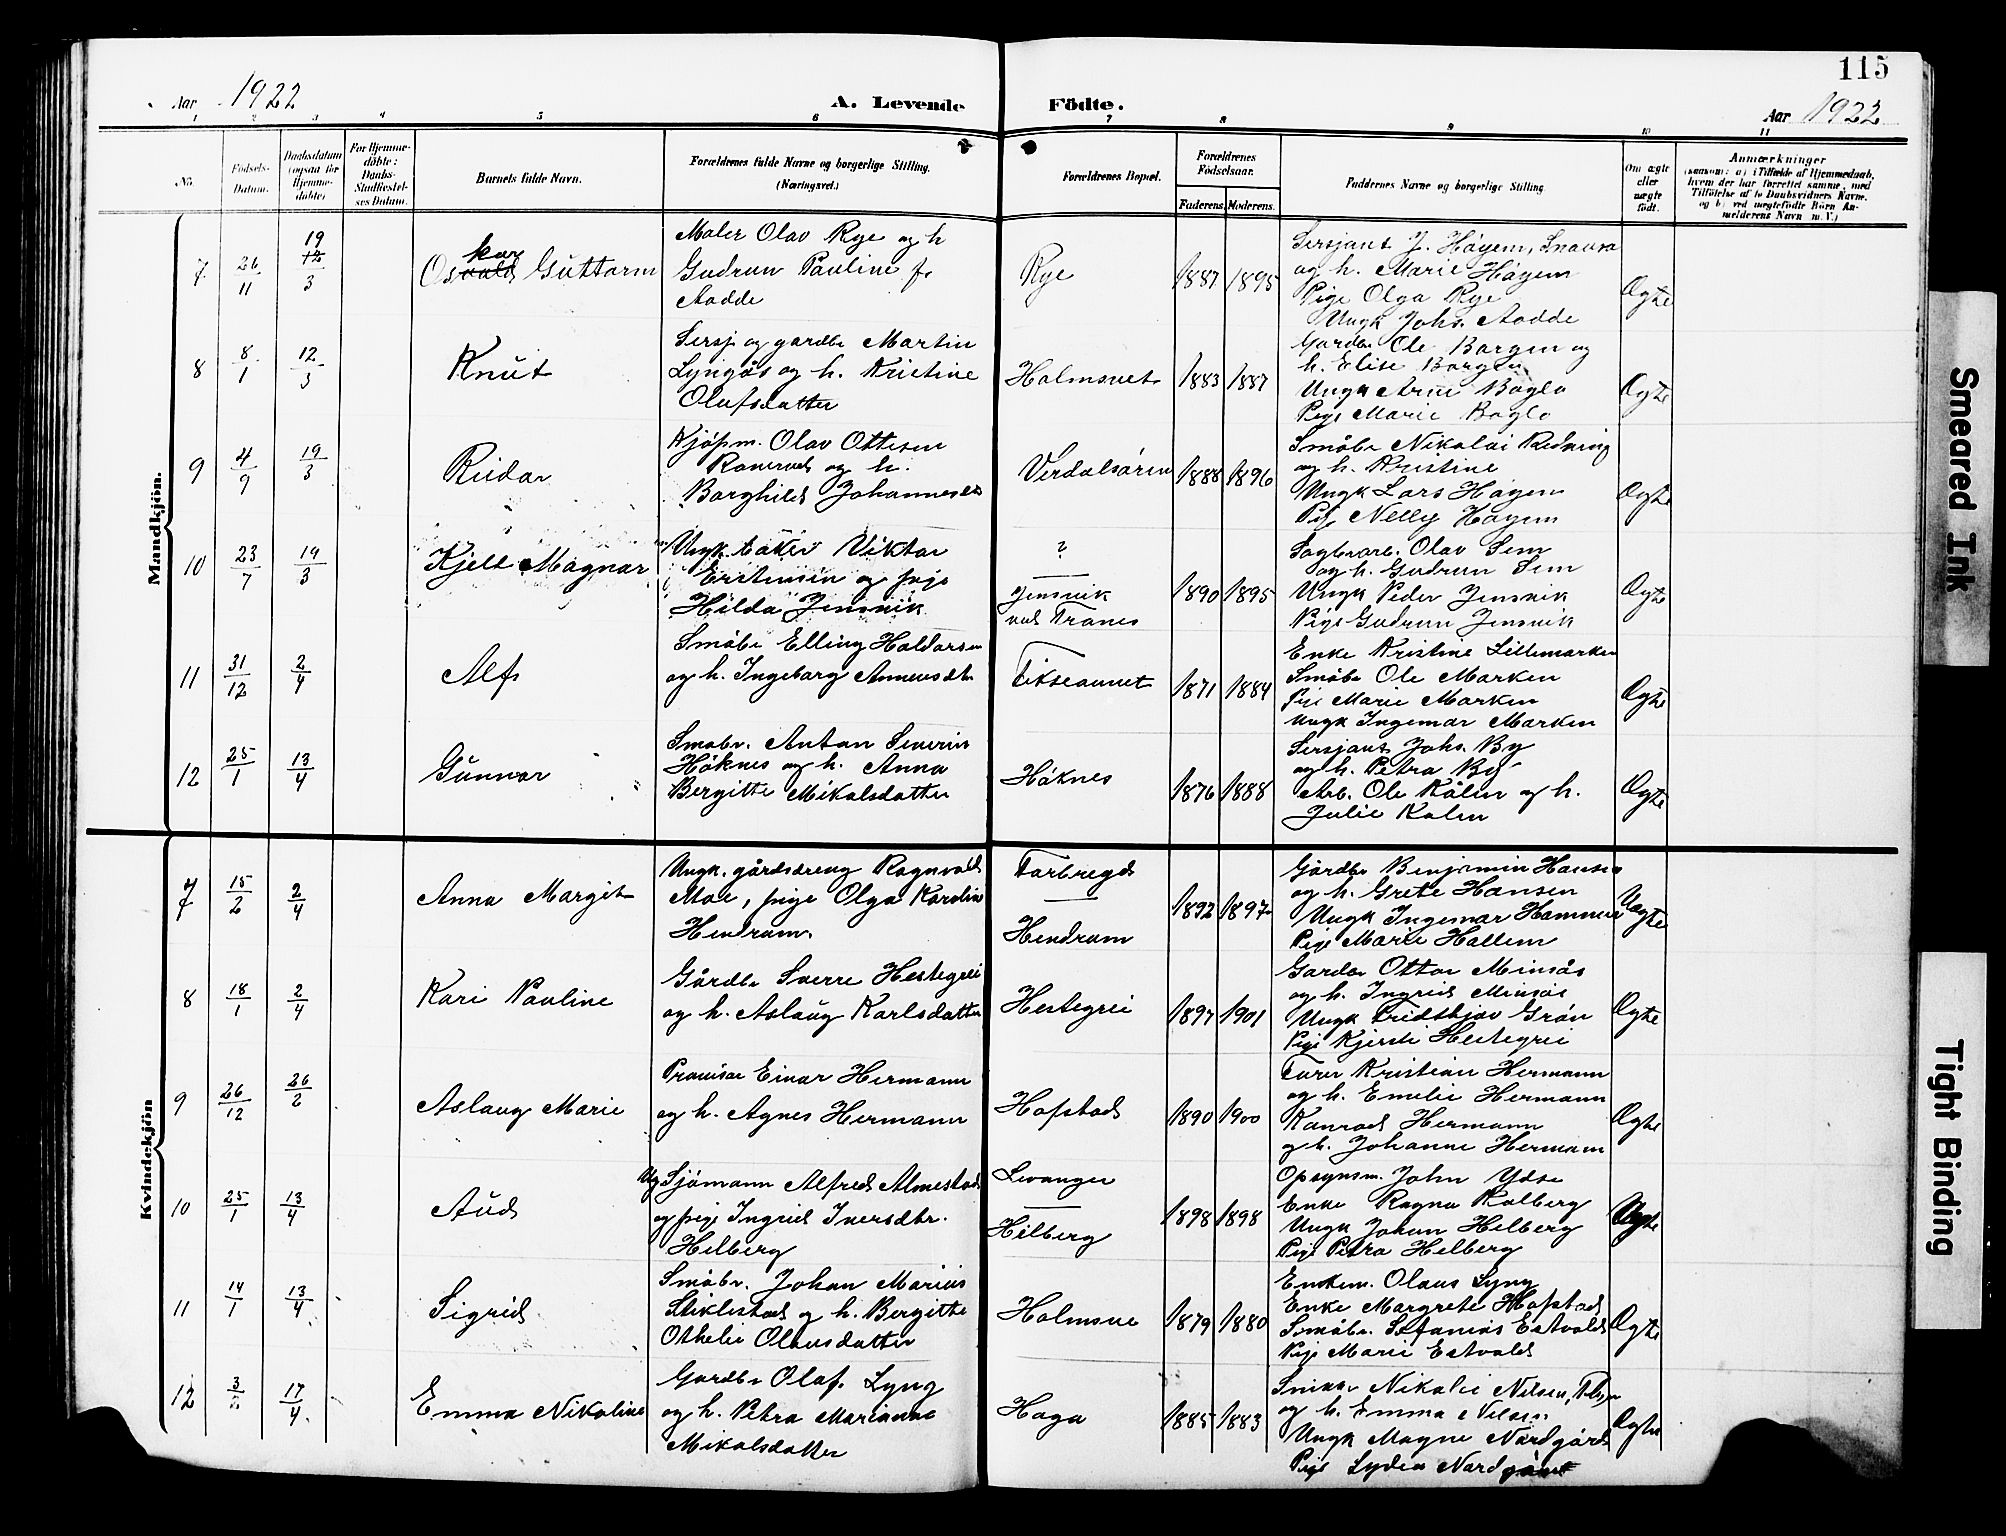 115
Aar 1922
A. Levende
Födte.
Aar 1922
1 2 3 4 5 6 7 8 9 10 11
No.
Födsels-
Datum.
Daabsdatum
(ogsaa for
Hjemme-
döbte)
For Hjemme-
döbte:
Daabs-
Stadfæstel-
ses Datum.
Barnets fulde Navn.
Forældrenes fulde Navne og borgerlige Stilling.
(Næringsvei.)
Forældrenes Bopæl.
Forældrenes
Födselsaar.
Faderens. Moderens.
Faddernes Navne og borgerlige Stilling.
Om ægte
eller
uægte
født.
Anmærkninger
Mandkjön.
7 26/11 19/3 Oskar Guttorm
Maler Olav Rye og h
Gudrun Pauline f.
Aadde
Rye
1887 1895
Sersjant J. Høyem, Snausa
og h. Marie Høyem
Pige Olga Rye
Ungk Johs. Aadde
Ægte
8 8/1 12/3 Knut
Sersj og gardbr Martin
Lyngås og h. Kristine
Olafsdatter
Holmsvet
1883 1887
Gardbr Ole Borgen og
h. Elise Borgen
Ungk Arne Baglo
Pige Marie Baglo
Ægte
9 4/9 19/3 Reidar
Kjøpm. Olav Ottesen
og h.
Borghild Johannesdt
Verdalsøren
1888 1896
Småbr Nikolai
og h. Kristine
Ungk Lars Høyem
Pige Nelly Høyem
Ægte
10 23/7 19/3 Kjell Magnar
Ungk. baker Viktor
og pige
Hilda Jensvik
?
Jensvik
ved Tranes
1890 1895
Sagbrarb. Olav Sem
og h. Gudrun Sem
Ungk Peder Jensvik
Pige Gudrun Jensvik
11 31/12 2/4 Alf
Småbr Elling Haldorsen
og h. Ingeborg
1871 1884
Enke Kristine Lillemarken
Småbr Ole Marken
Pige Marie Marken
Ungk Ingemar Marken
Ægte
12 25/1 13/4 Gunnar
Småbr. Anton Severin
Høknes og h. Anna
Bergitte Mikalsdatter
Høknes
1876 1888
Sersjant Johs. By
og h. Petra By
Arb. Ole Kålen og h.
Julie Kalen
Ægte
Kvindekjön
7 15/2 2/4 Anna Margit
Ungk. gårdsdreng Ragnvald
Moe, pige Olga Karoline
Hendrum.
Forbregd
Hendrum
1892 1897
Gårdbr Benjamin Hansen
og h. Grete Hansen
Ungk Ingemar Hammer
Pige Marie Hallem
Uægte
8 18/1 2/4 Kari Pauline
Gårdbr Sverre Hestegrei
og h. Aslaug Karlsdatter
Hestegrei
1897 1901
Gardbr Ottar Minsås
og h. Ingrid Minsås
Ungk Fridthjov Grøn
Pige Kjersti Hestegrei
Ægte
9 26/12 26/2 Aslaug Marie
Einar Hermann
og h. Agnes Hermann
Hofstad
1890 1900
Kristian Hermann
og h. Emelie Hermann
Konrad Hermann
og h. Johanne Hermann
Ægte
10 25/1 13/4 Aud
Ug Sjømann Alfred Almestad
og pige Ingrid Iversdtr.
Helberg
Levanger
Hilberg
1898 1898
Opsynsm. John Ydse
Enke Ragna Kolberg
Ungk Johan Helberg
Pige Petra Helberg
11 14/1 13/4 Sigrid
Småbr. Johan Marius
Stiklestad og h. Bergitte
Othelie Olausdatter
Holmsve
1879 1880
Enkem. Olaus Lyng
Enke Margrete Hofstad
Småbr. Stefanias Estvald
Pige Marie Estvald
Ægte
12 17/4 Emma Nikoline
Gardbr Olaf Lyng
og h. Petra Marianne
Mikalsdatter
Haga
1885 1883
Nikolai Nilsen,
og h. Emma Nilsen
Ungk Magne Nordgård
Pige Lydia Nordgård
Ægte
Smeared Ink
Tight Binding